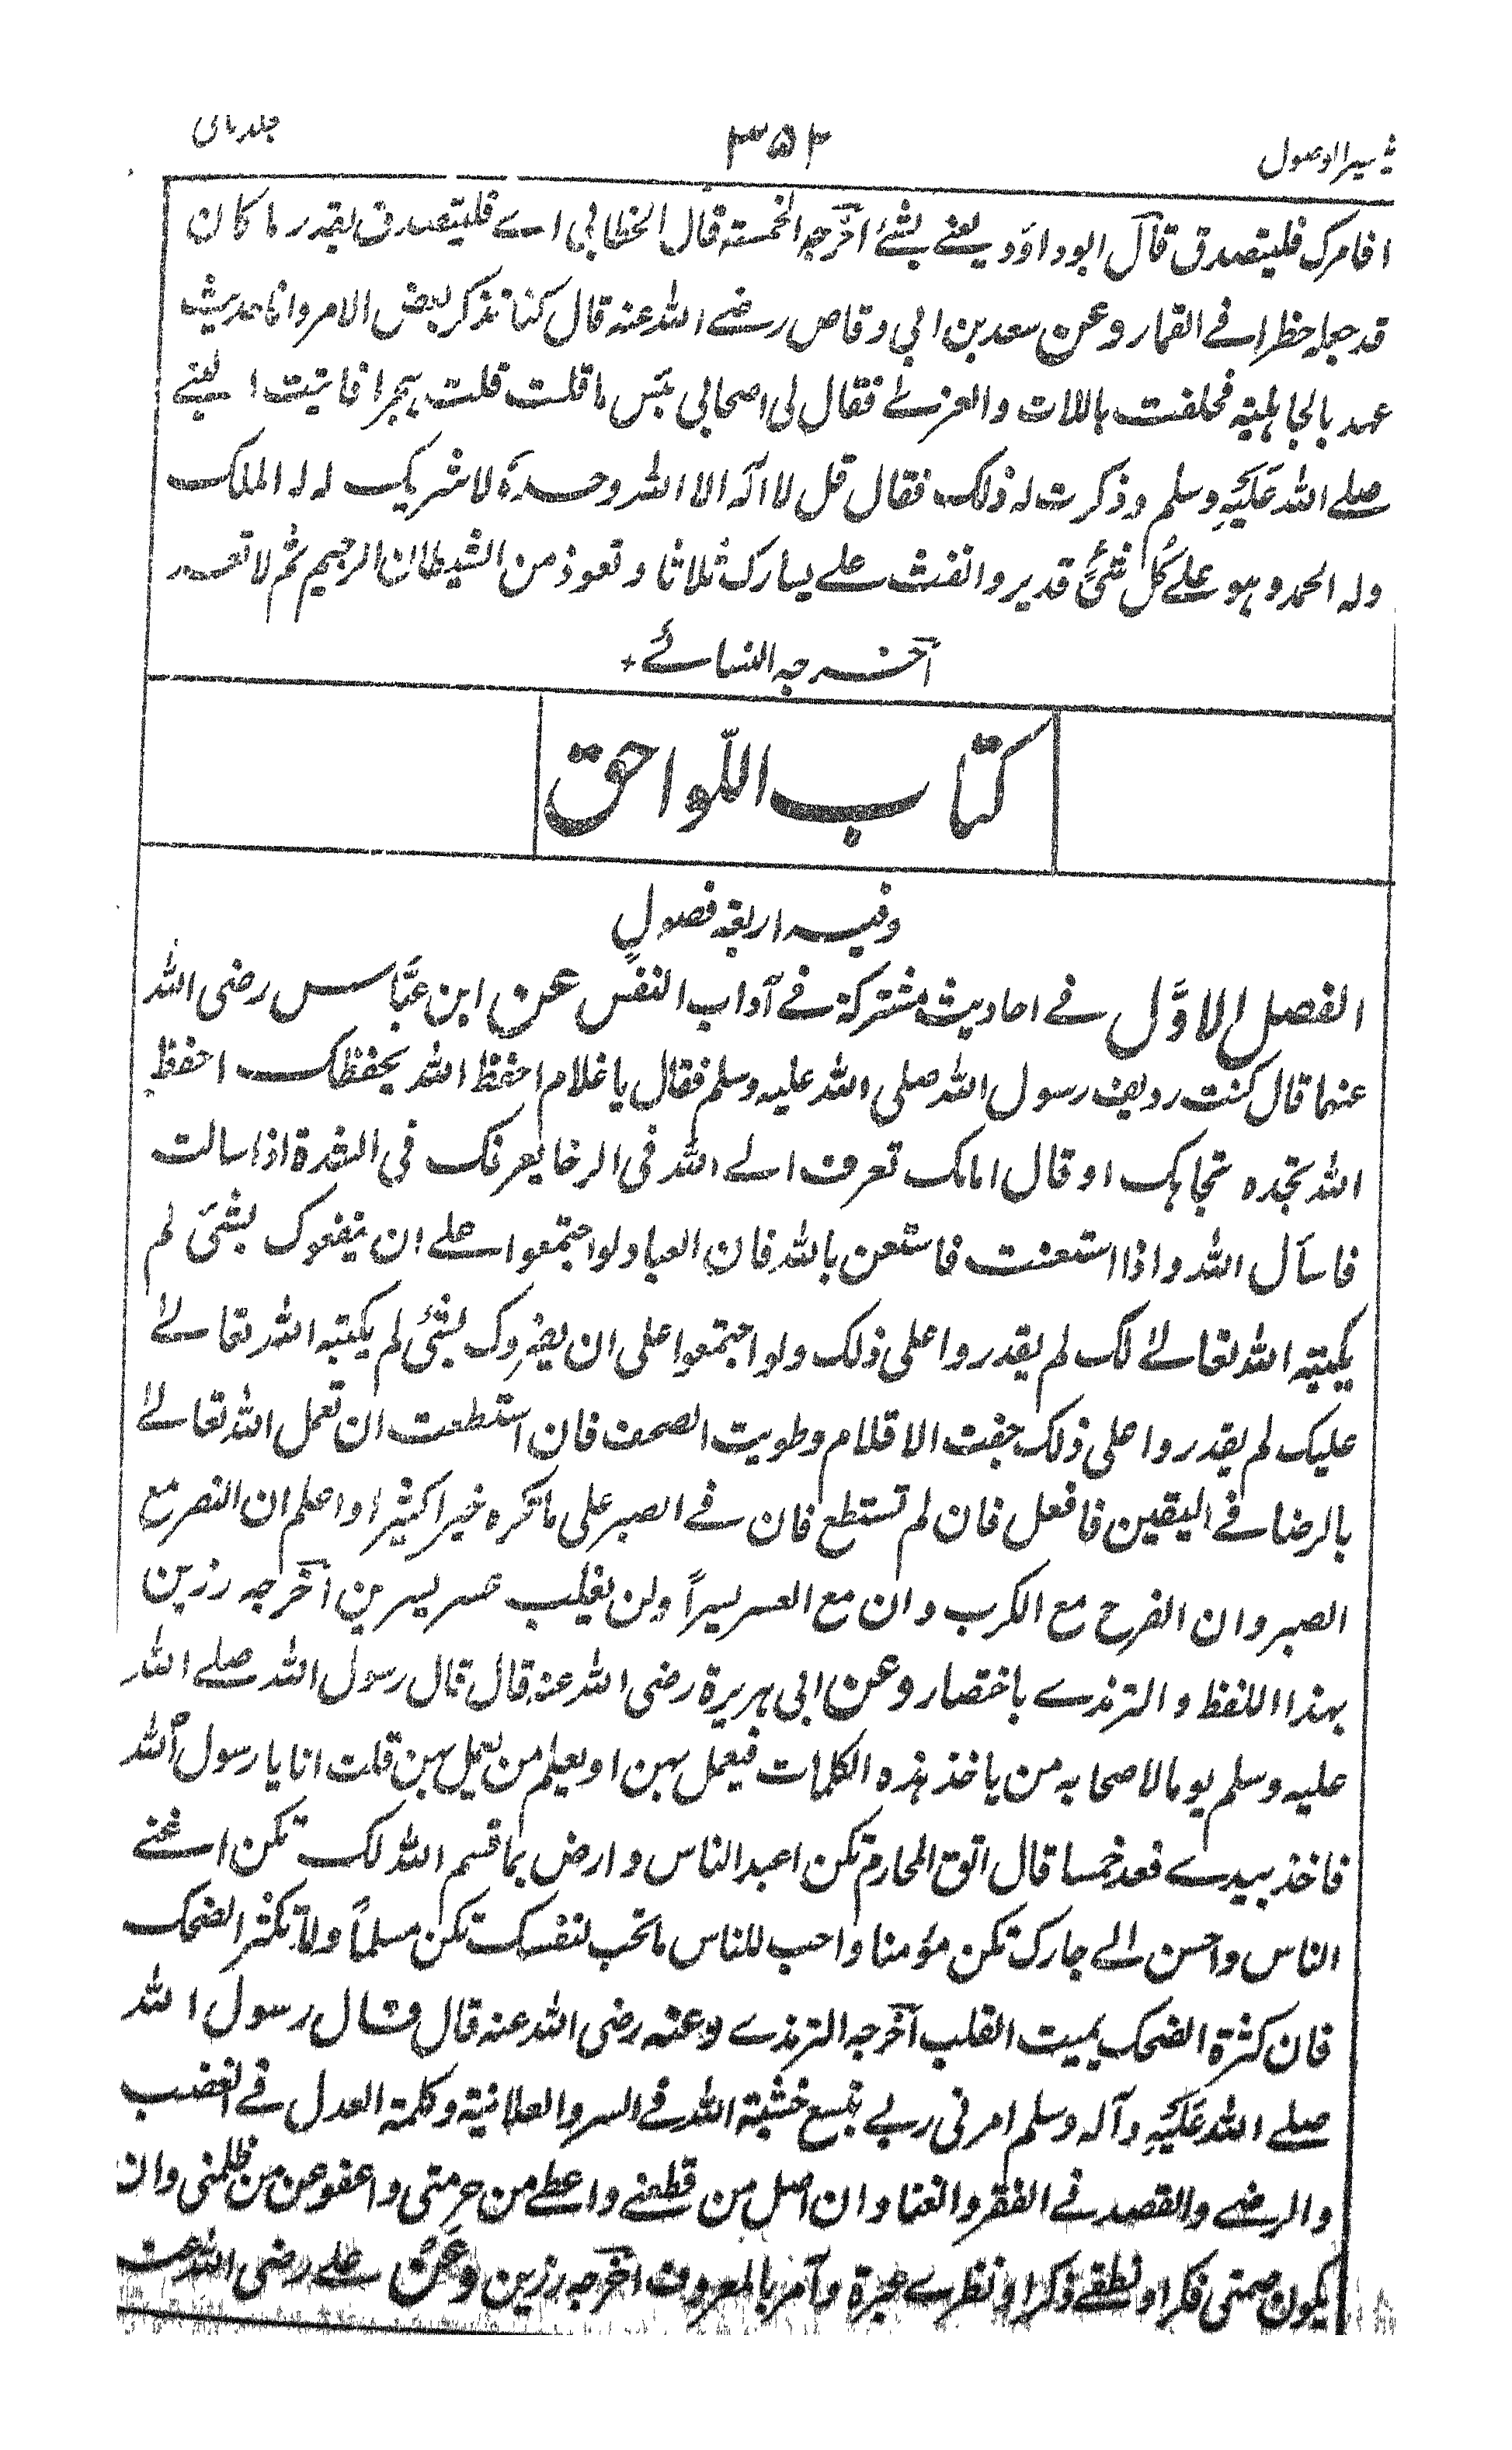 تيسير الوصول ۳۵۲ جلد ثانى
اقامرک فليتصدق قال ابو داؤد يعنے بشئ اخرجه الخمسة قال الخطابى اے فليتصدق بقدر ما كان
قد جعله حظرا فے القمار وعن سعد بن ابى وقاص رضے الله عنه قال كنا نذكر بعض الامر وانا حديث
عهد بالجاهلية فحلفت باللات والعزے فقال لى اصحابى بئس ما قلت قلت هجرا فاتيت النبے
صلے الله عَلَيْهِ وسلم وذكرت له ذلک فقال قل لا اله الا الله وحده لا شريک له له الملک
وله الحمد وهو علے كُل شئٍ قدير وانفث علے يسارک ثلاثا وتعوذ من الشيطان الرجيم ثم لا تعد
اخرجه النسائے ٭
كتاب اللّواحق
وفيه اربعة فصول
الفصل الاوَّل فے احاديث مشتركة فے آداب النفس عن ابن عبَّاس رضى الله
عنهما قال كنت رديف رسول الله صلى الله عليه وسلم فقال يا غلام احفظ الله يحفظک احفظ
الله تجده تجاهک او قال امامک تعرف الے الله فى الرخا يعرفک فى الشدة اذا سالت
فاسأل الله واذا استعنت فاستعن بالله فان العباد لو اجتمعوا علے ان ينفعوک بشئ لم
يكتبه الله تعالےٰ لک لم يقدروا على ذلک ولو اجتمعوا على ان يضروک بشئ لم يكتبه الله تعالےٰ
عليک لم يقدروا على ذلک جفت الاقلام وطويت الصحف فان استطعت ان تعمل الله تعالےٰ
بالرضا فے اليقين فافعل فان لم تستطع فان فے الصبر على ما تكره خيرا كثيرا واعلم ان النصر مع
الصبر وان الفرح مع الكرب وان مع العسر يسراً ولن يغلب عسر يسرين اخرجه رزين
بهذا اللفظ والترمذے باختصار وعن ابى هريرة رضى الله عنه قال قال رسول الله صلے الله
عليه وسلم يوما لاصحابه من ياخذ هذه الكلمات فيعمل بهن او يعلم من يعمل بهن قلت انا يا رسول الله
فاخذ بيدے فعد خمسا قال اتق المحارم تكن اعبد الناس وارض بما قسم الله لک تكن اغنے
الناس واحسن الے جارک تكن مؤمنا واحب للناس ما تحب لنفسک تكن مسلماً ولا تكثر الضحک
فان كثرة الضحک يميت القلب اخرجه الترمذے وعنه رضى الله عنه قال قال رسول الله
صلے الله عَلَيْهِ وآله وسلم امرنى ربے بتسع خشية الله فے السر والعلانية وكلمة العدل فے الغضب
والرضے والقصد فے الفقر والغنا وان اصل من قطعنے واعطے من حرمنى واعفو عن من ظلمنى وان
يكون صمتى فكرا ونطقے ذكرا ونظرے عبرة وآمر بالمعروف اخرجه رزين وعَنْ علے رضى الله عنه